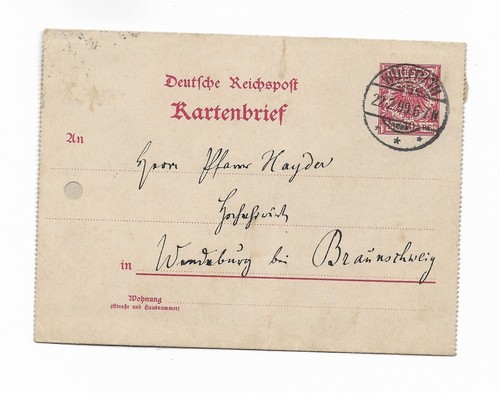 Deutsche Reichspost
Kartenbrief
An
Herrn Pfarrer Hayder
Hochehrwürden
in Wendeburg bei Braunschweig
Wohnung
(Straße und Hausnummer)